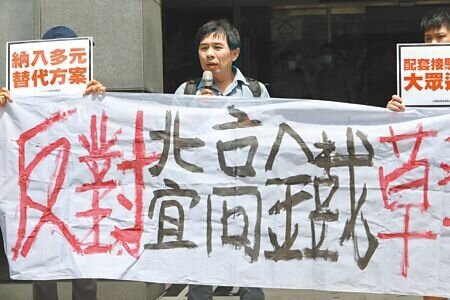 納入多元
替代方案
配套接
大眾
反對北宜高鐵草